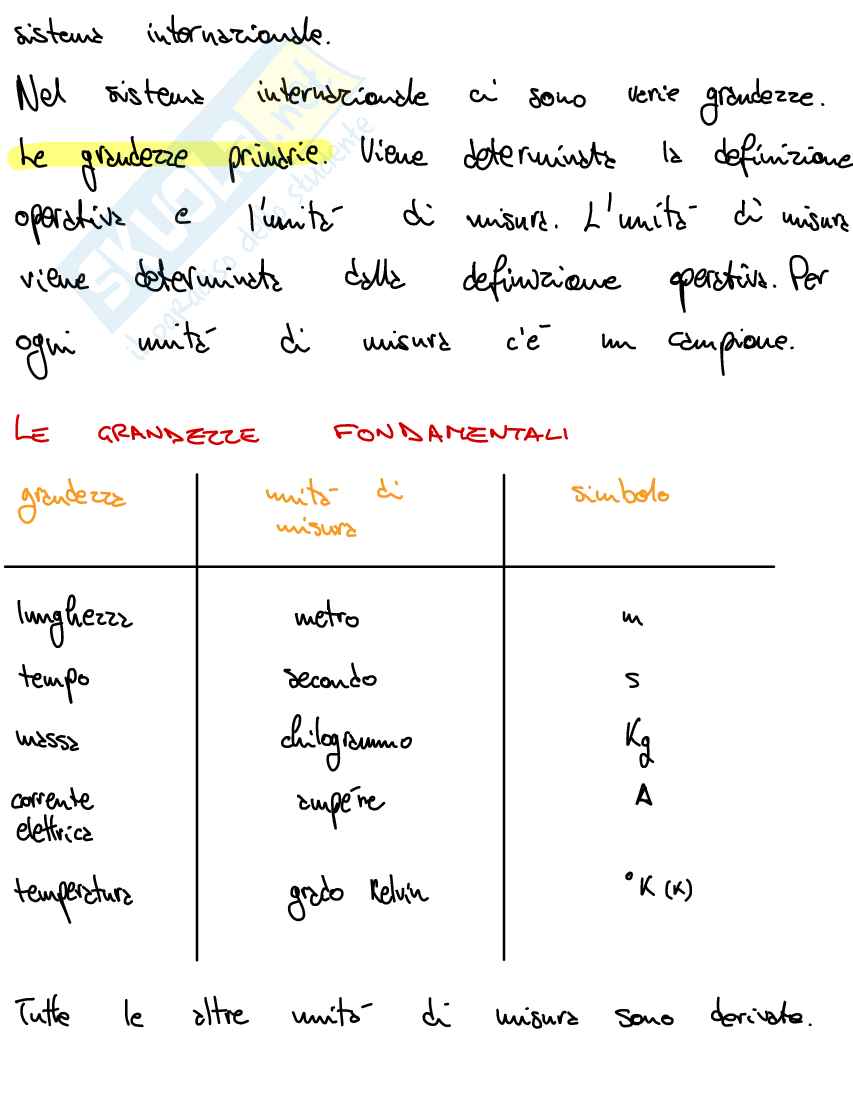 sistema internazionale.
Nel sistema internazionale ci sono varie grandezze.
Le grandezze primarie. Viene determinata la definizione
operativa e l'unità di misura. L'unità di misura
viene determinata dalla definizione operativa. Per
ogni unità di misura c'è un campione.
LE GRANDEZZE FONDAMENTALI
grandezza unità di misura simbolo
lunghezza metro m
tempo secondo s
massa chilogrammo Kg
corrente elettrica ampére A
temperatura grado Kelvin °K (K)
Tutte le altre unità di misura sono derivate.
SKUOLA.net
il paradiso dello studente